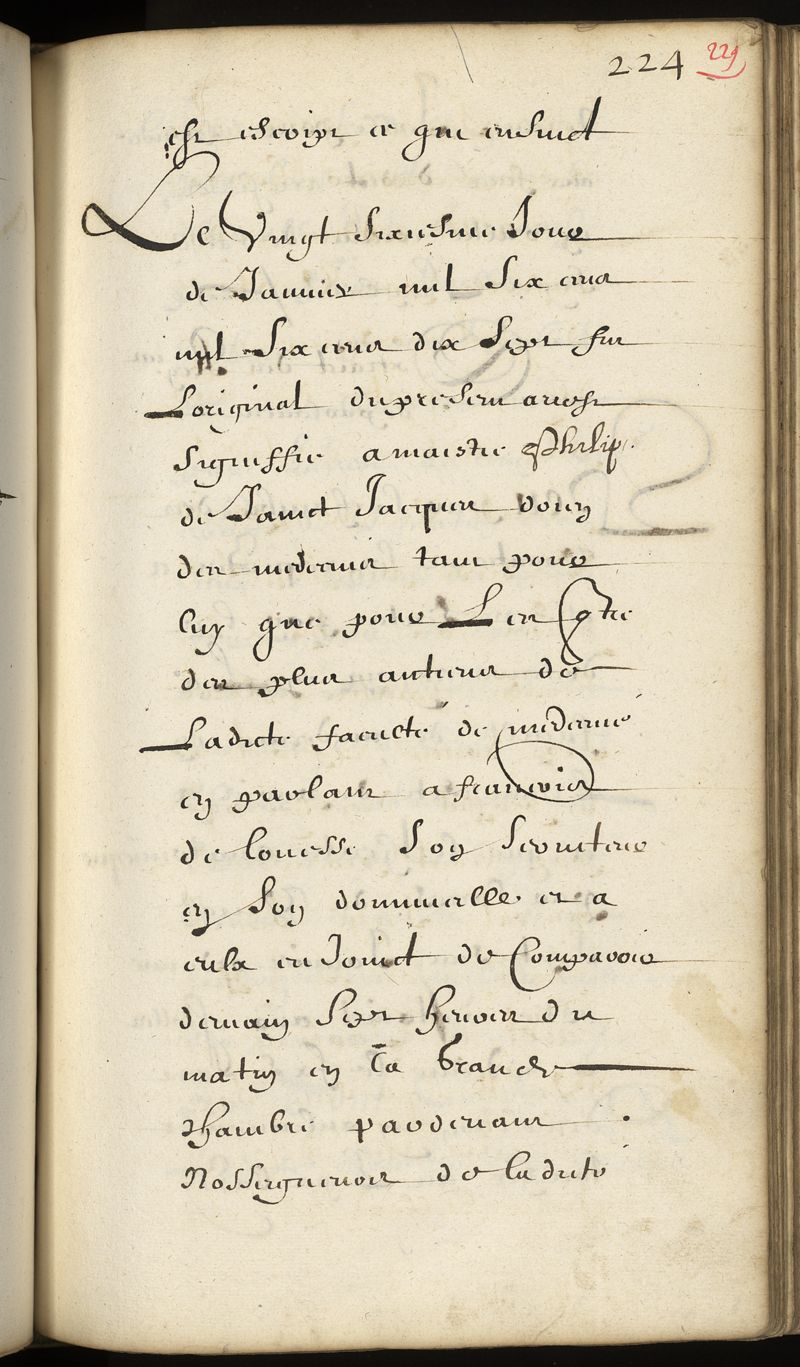 224 229
est escript ce que ensuict
Le Vingt sixiesme Jour
de Januier mil Six cens
mil Six cens dix Sept fut
Loriginal du present arrest
Signiffie a maistre Philip.
de Sainct Jacques doien
des medecins tant pour
luy que pour Les
des plus antiens de
Ladicte faculté de medecine
en parlant a francois
de Son Seruiteur
en Son dommicelle et a
eulx enJoinct de Comparoir
demain Sept heures du
matin en La Grande
chambre pardeuant
Nosseigneurs de ladicte